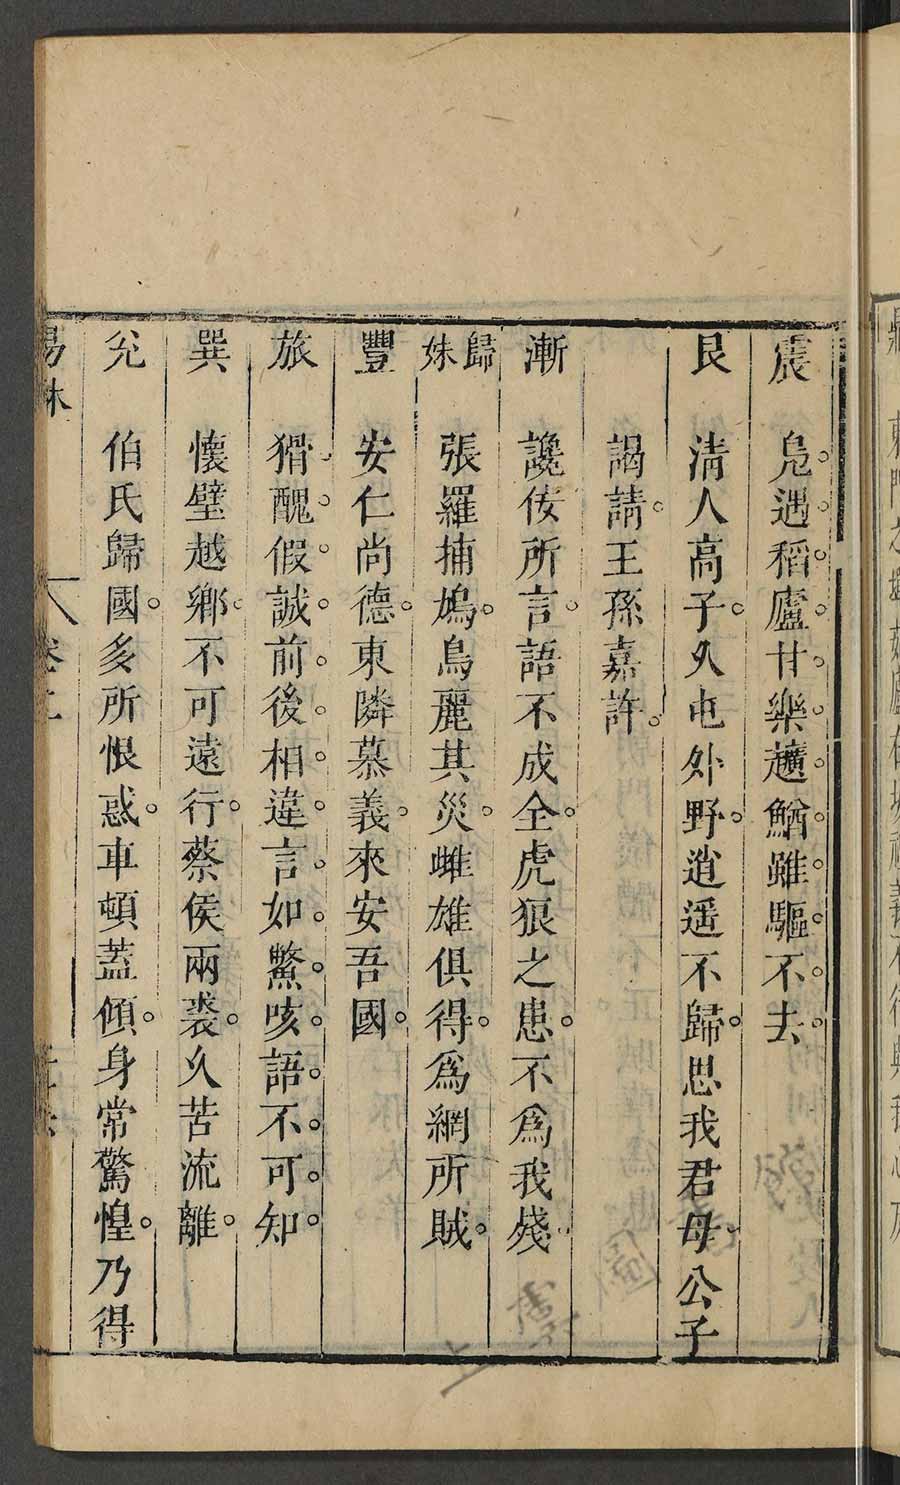 震 鳬遇稻廬甘樂趱鰌雖驅不去
艮 清人高子久屯外野逍遥不歸思我君母公子
謁請王孫嘉許
漸 讒佞所言語不成全虎狼之患不爲我殘
歸妹 張羅捕鳩鳥麗其災雌雄俱得爲網所賊
豐 安仁尚德東隣慕義來安吾國
旅 猾醜假誠前後相違言如鱉咳語不可知
巽 懷璧越鄉不可遠行蔡侯兩裘久苦流離
兌 伯氏歸國多所恨惑車頓蓋傾身常驚惶乃得
易林 卷二